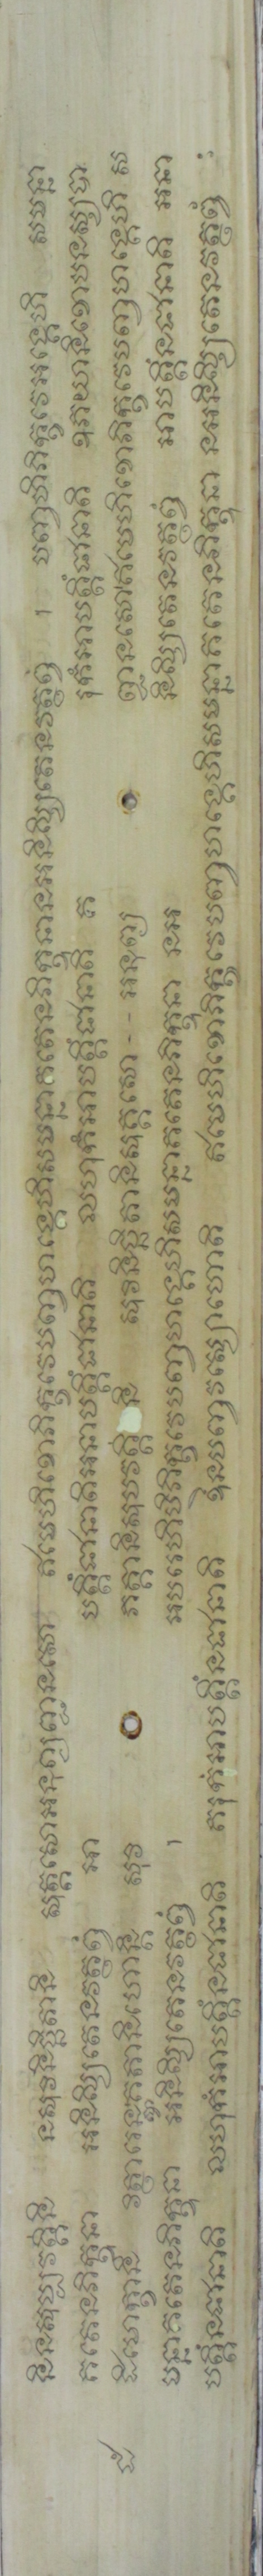 និនសុប្បវត្តីនិ នសុវនិច្ឆិតានិ សុត្តសោអនុព្យញ្ជនសោ ឥមេហិខោភិក្ខវេបញ្ចហង្គេហិសមន្នាគតេនភិក្ខុនានអនិស្សិតេនវត្ថព្វំ ។ បញ្ចហិភិក្ខវេអង្គេហិ សមន្នា
គតេនភិក្ខុនា អនិស្សិតេនវត្ថព្វំ អា បត្តិំជានាតិអនាបត្តិំជានាតិ លហុកំអាបត្តិំជានាតិ គ រុកំអាបត្តិំជានាតិ ឧភយានិខោបនស្សបា
ដិមោក្ខានិ វិត្ថារេន គតានិហោន្តិ សុវ ភត្តានិសុបវត្តីនិ សុវនិច្ឆិតានិសុត្តសោ - - អនុព្យ ញ្ជនសោឥមេហិខោភិក្ខវេបញ្ចហង្គេហិ ស
មន្នាគតេនភិក្ខុនា អនិស្សិតេនវត្ថព្វំ ។ អបរេហិបិភិក្ខវេបញ្ចហង្គេហិសមន្នាគតេនភិក្ខុនា នអ និស្សិតេនវត្ថព្វំ អាបត្តិំនជានាតិ អនា
បត្តិំនជានាតិ លហុកំអាបត្តិំនជានាតិ គរុកំអាបត្តិំនជានាតិ ឩនបញ្ចវស្សោហោតិ ឥមេហិខោភិក្ខវេបញ្ចហង្គេហិសមន្នាគតេនភិក្ខុនា នអនិស្សិតេនវត្ថព្វំ ៖